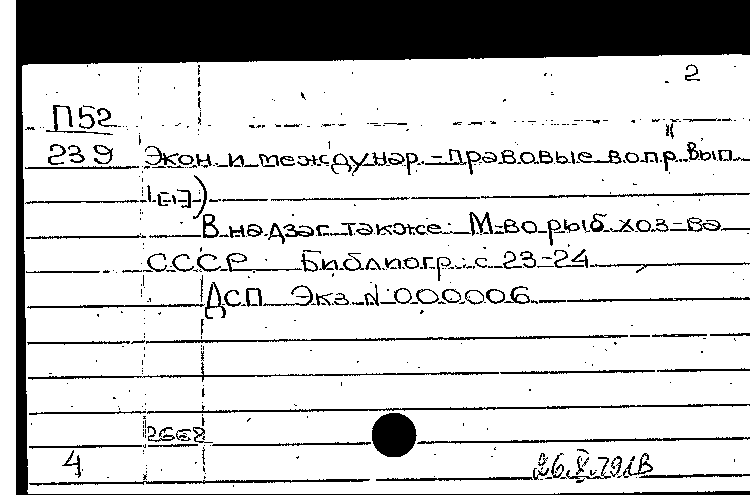 2
П52
239 Экон и междунар.-правовые вопр. Вып.
В надзаг также: М-во рыб. хоз-ва
СССР Библиогр.: с 23-24
ДСП Экз N 000006
2668
4
26.X.79